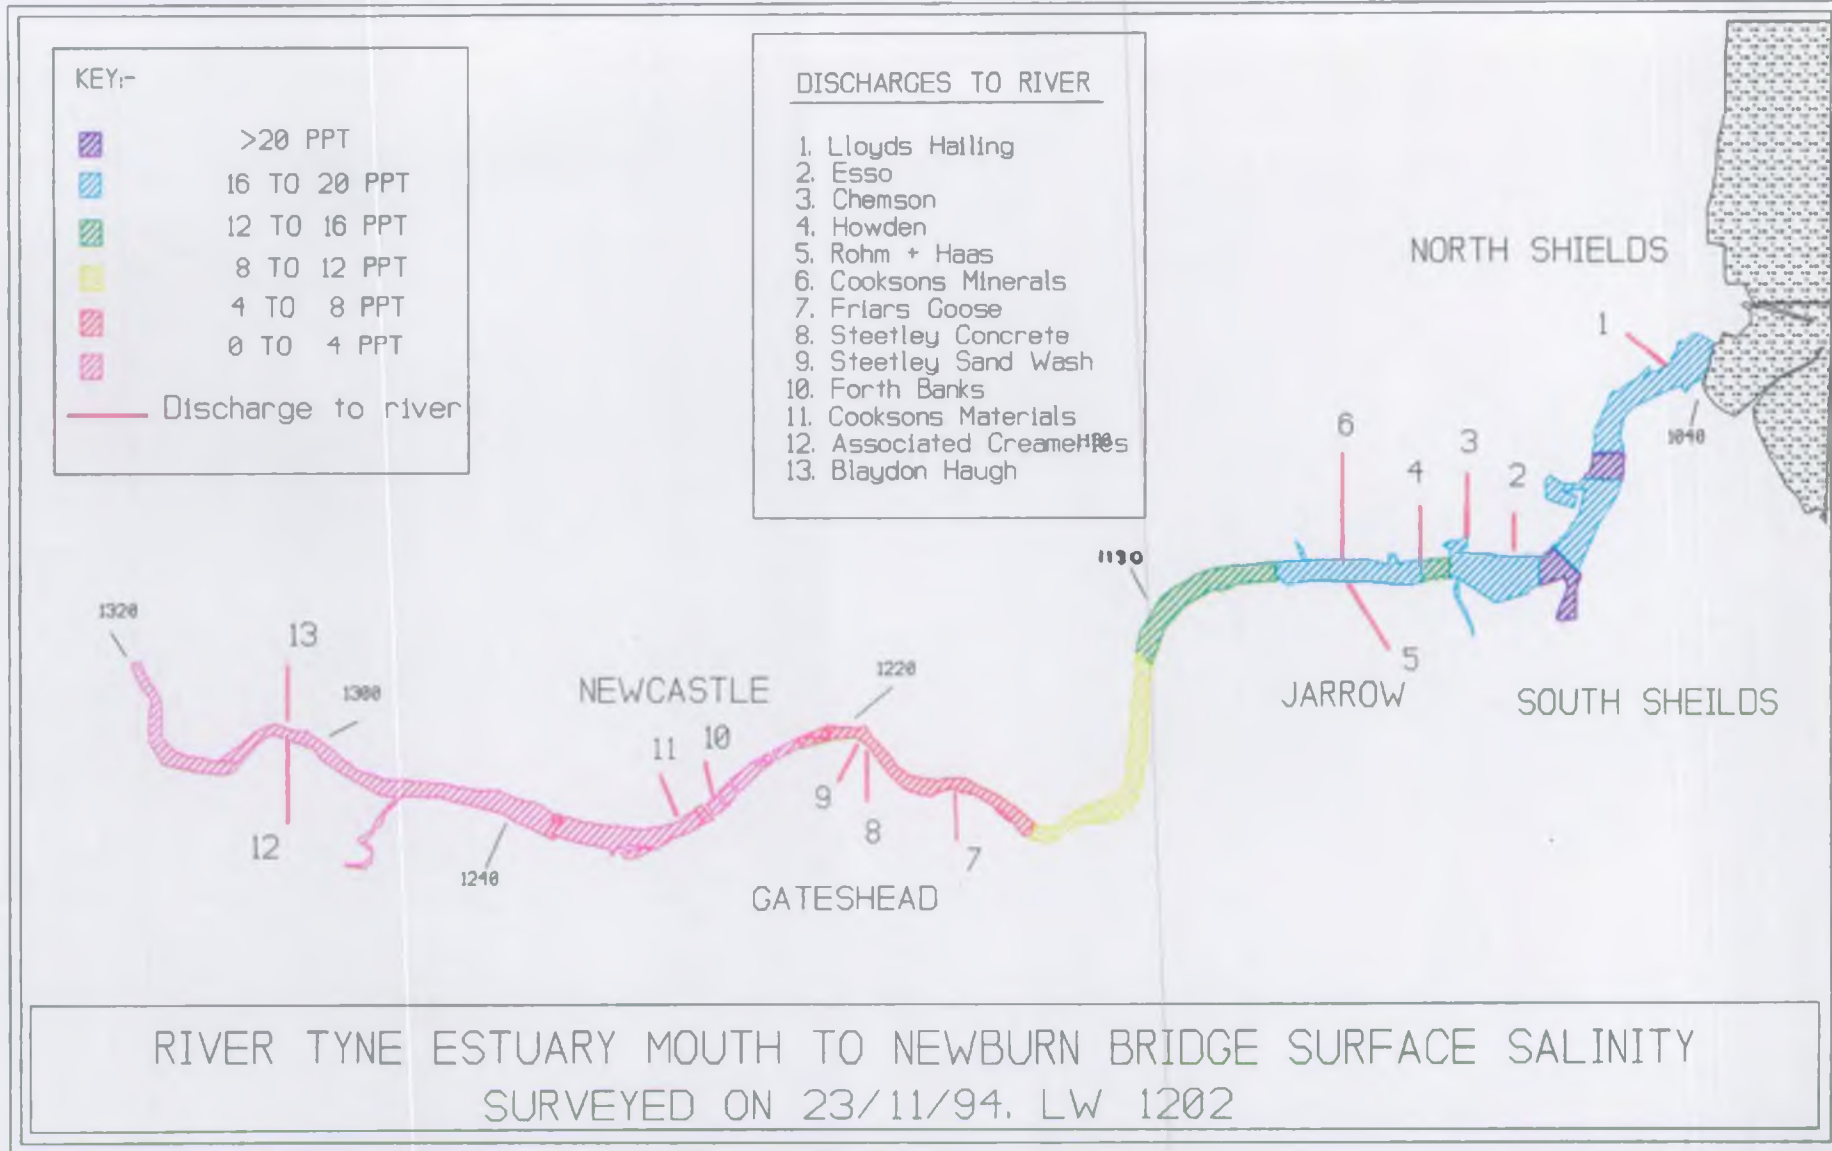 KEY:-
>20 PPT
16 TO 20 PPT
12 TO 16 PPT
8 TO 12 PPT
4 TO 8 PPT
0 TO 4 PPT
Discharge to river
DISCHARGES TO RIVER
1. Lloyds Hailing
2. Esso
3. Chemson
4. Howden
5. Rohm + Haas
6. Cooksons Minerals
7. Friars Goose
8. Steetley Concrete
9. Steetley Sand Wash
10. Forth Banks
11. Cooksons Materials
12. Associated Creameries
13. Blaydon Haugh
NORTH SHIELDS
1
1040
6
3
4
2
1130
5
JARROW
SOUTH SHEILDS
1320
13
1300
NEWCASTLE
1220
11
10
9
8
7
12
1240
GATESHEAD
RIVER TYNE ESTUARY MOUTH TO NEWBURN BRIDGE SURFACE SALINITY
SURVEYED ON 23/11/94. LW 1202